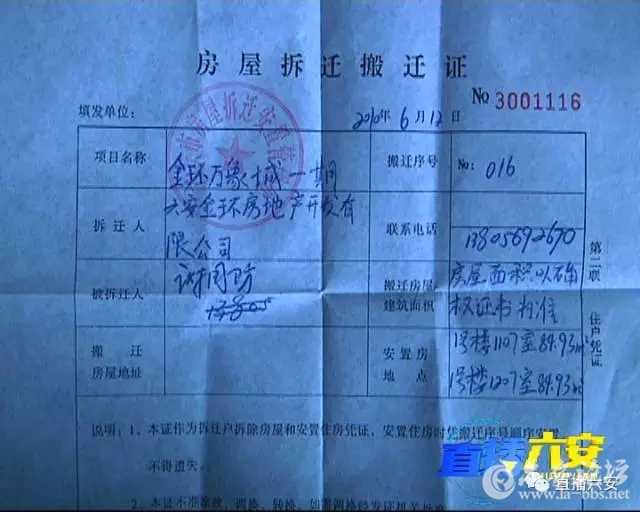 房屋拆迁搬迁证
填发单位：
2010年6月12日
No 3001116
项目名称
金环万象城一期
搬迁序号
No: 016
拆迁人
六安金环房地产开发有限公司
联系电话
13805692670
被拆迁人
搬迁房屋建筑面积
房屋面积以确权证书为准
搬迁房屋地址
安置房地点
1号楼1107室84.93m²
1号楼1207室84.93m²
第二联 住户凭证
说明：1、本证作为拆迁户拆除房屋和安置住房凭证，安置住房时凭搬迁序号顺序安置
不得遗失。
2、本证不准涂改、调换、转换，如需调换经发证机关
直播六安
直播六安
www.la-bbs.net